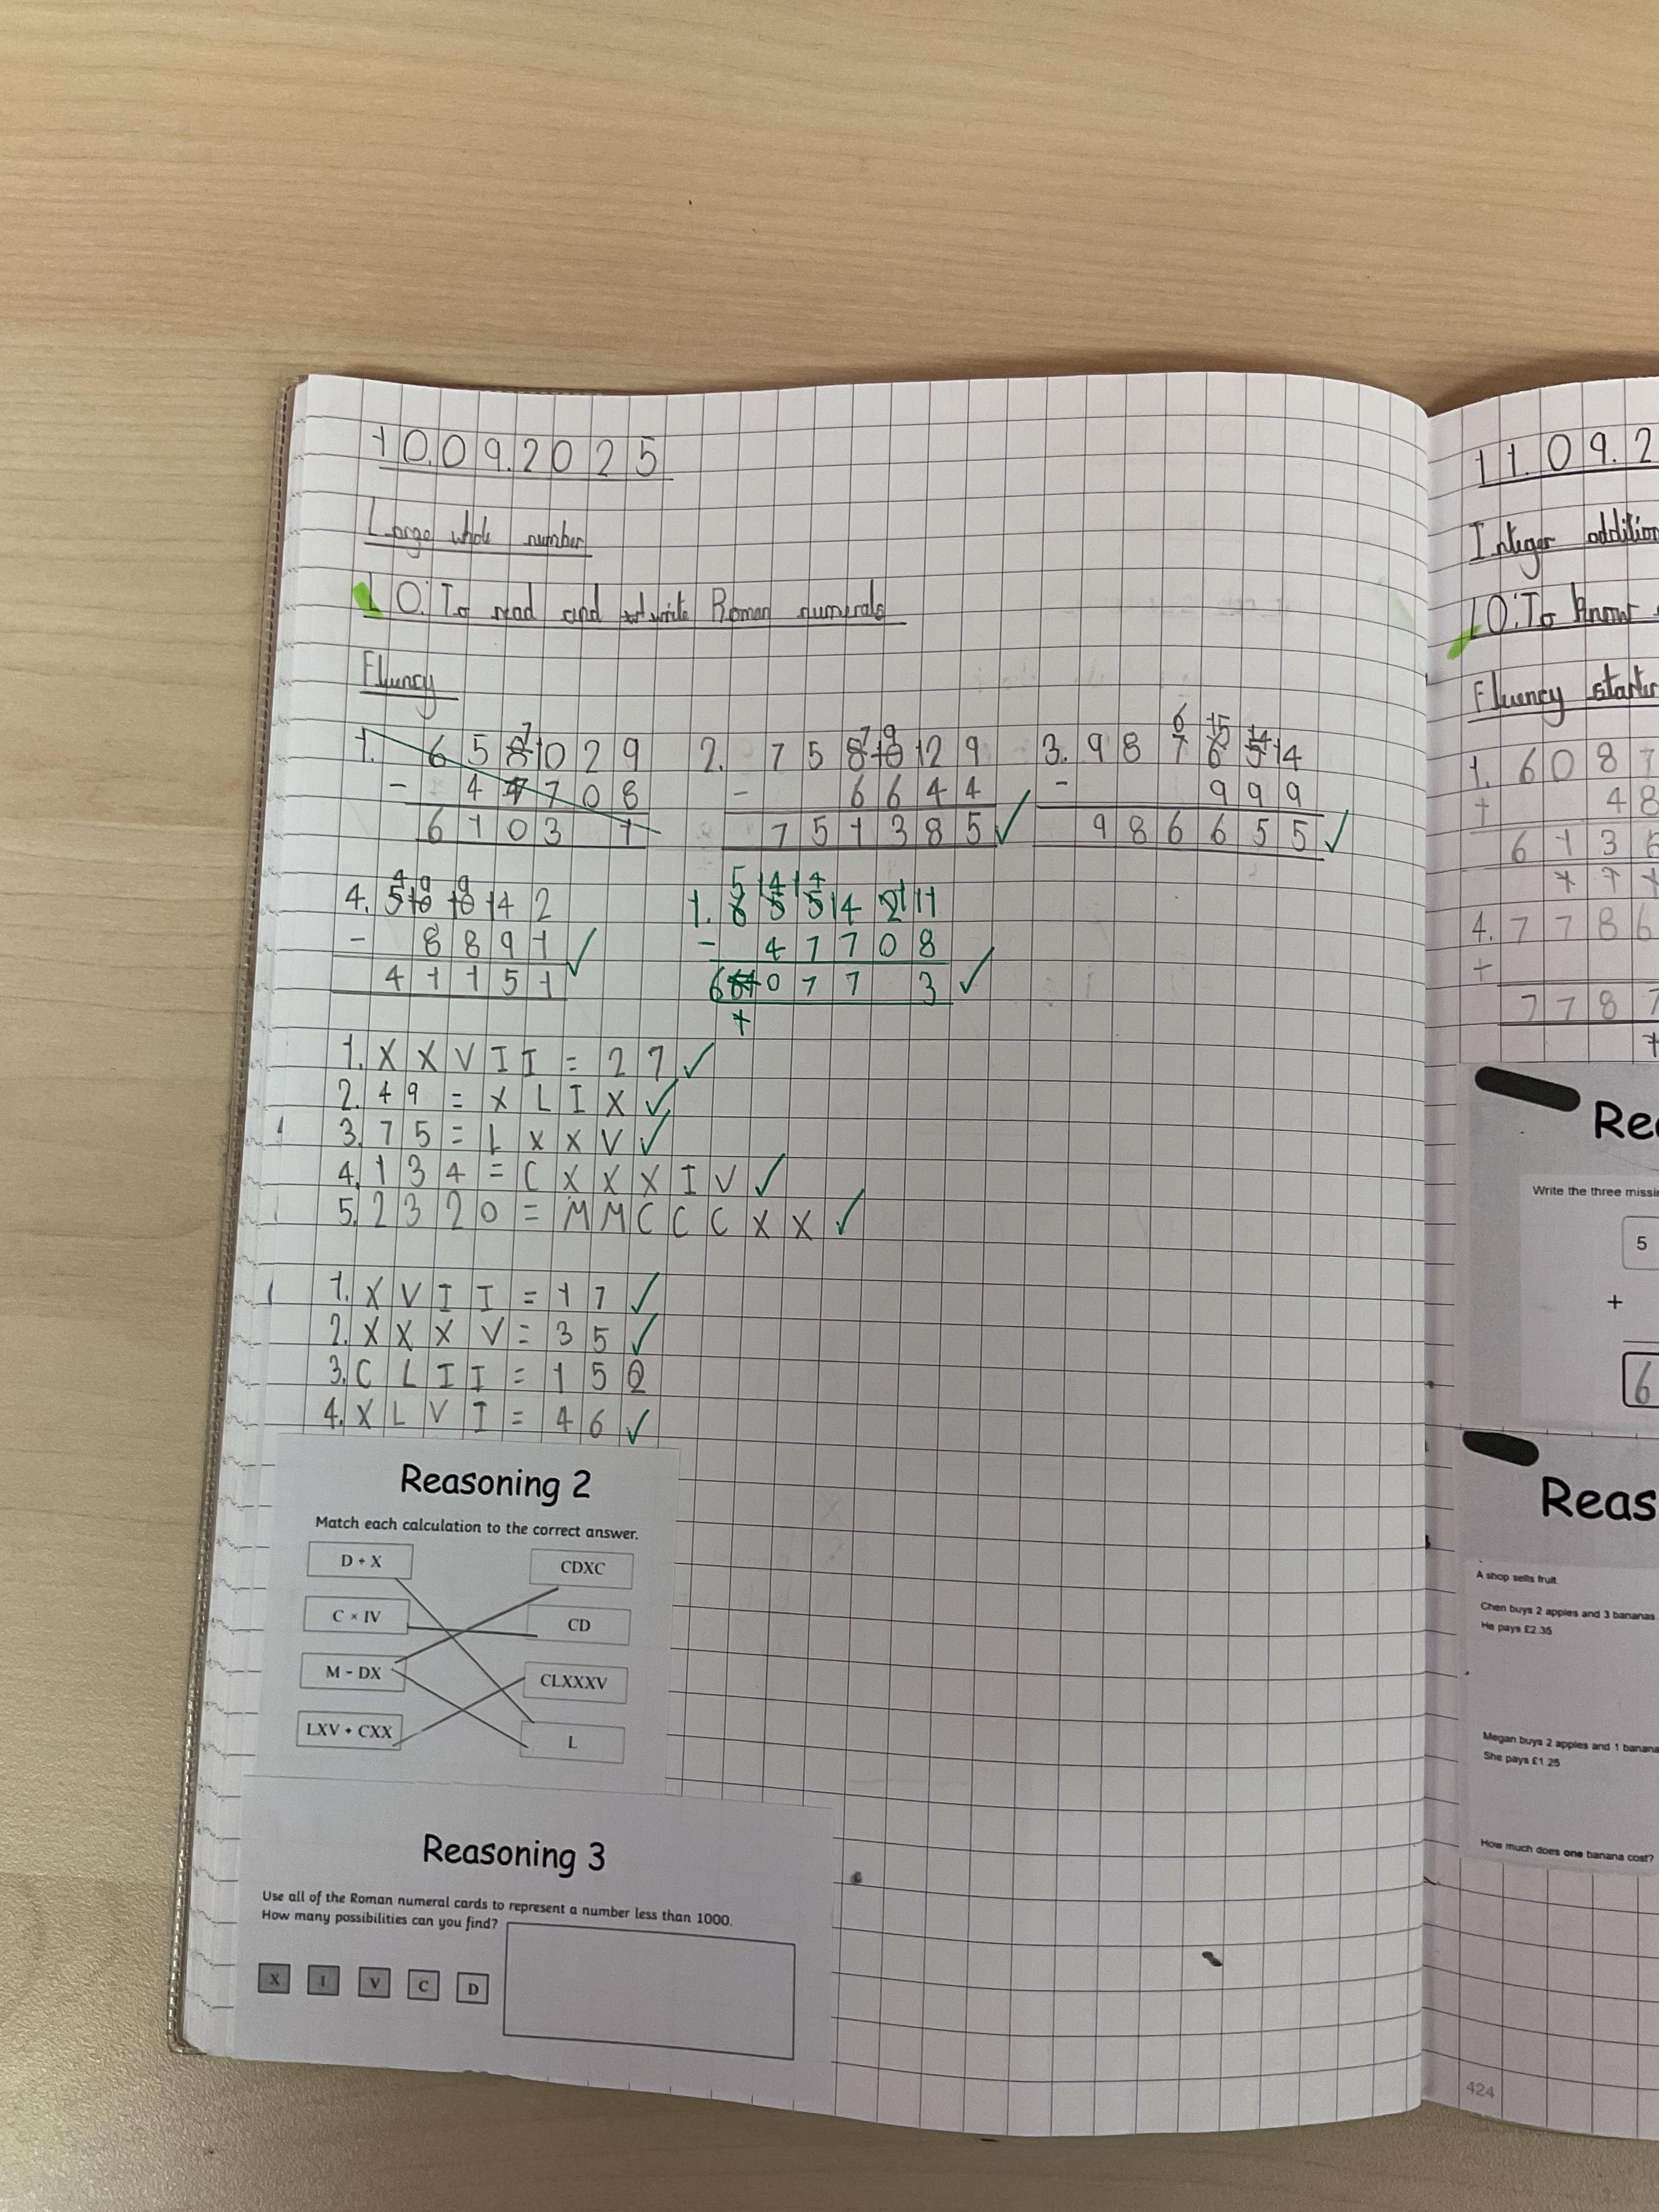 10.09.2025
Large whole number
LO: To read and write Roman numerals
Fluency
1. 6 5 8 10 2 9
- 4 7 7 0 8
6 1 0 3 1
2. 7 5 8 10 12 9
- 6 6 4 4
7 5 1 3 8 5 ✓
3. 9 8 7 6 5 14
- 9 9 9
9 8 6 6 5 5 ✓
4. 5 10 10 14 2
- 8 8 9 1
4 1 1 5 1 ✓
- 4 7 7 0 8
1. XXVII = 27 ✓
2. 49 = XLIX ✓
3. 75 = LXXV ✓
4. 134 = CXXXIV ✓
5. 2320 = MMCCCXX ✓
1. XVII = 17 ✓
2. XXXV = 35 ✓
3. CLII = 152
4. XLVI = 46 ✓
Reasoning 2
Match each calculation to the correct answer.
D + X CDXC
C × IV CD
M - DX CLXXXV
LXV + CXX L
Reasoning 3
Use all of the Roman numeral cards to represent a number less than 1000.
How many possibilities can you find?
X I V C D
11.09.2
Integer addition
LO: To know
Fluency
1. 6 0 8 7
+ 4 8
6 1 3 6
4. 7 7 8 6
+
7 7 8 7
Write the three
5
+
6
A shop sells fruit.
Chen buys 2 apples and 3 bananas
He pays £2.35
Megan buys 2 apples and 1 banana
She pays £1.25
How much does one banana cost?
424